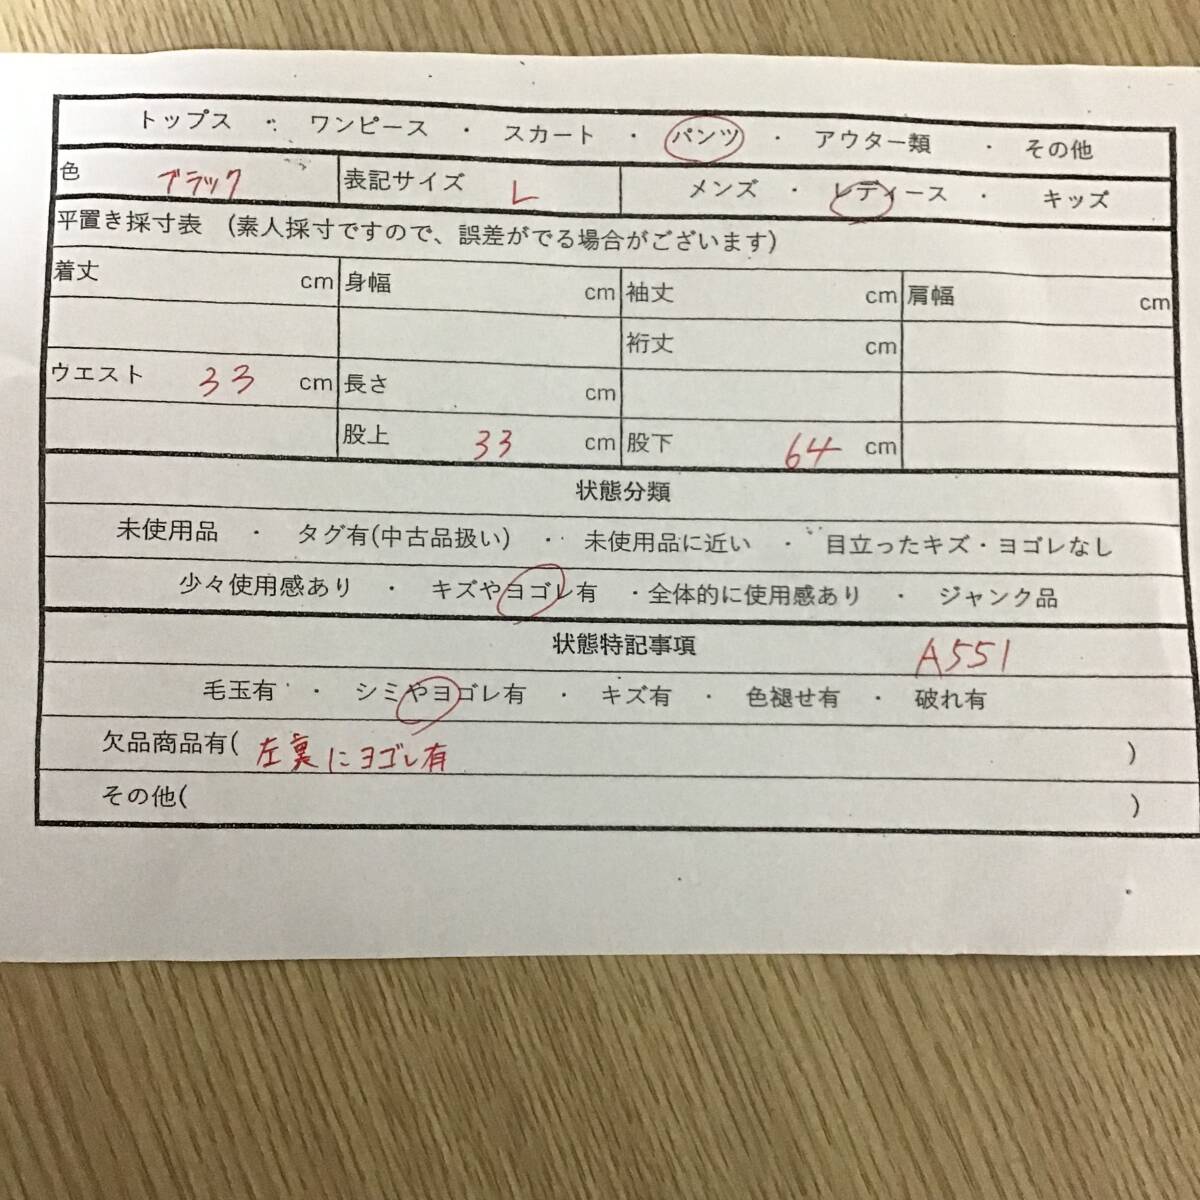 トップス ・ ワンピース ・ スカート ・ パンツ ・ アウター類 ・ その他
色 ブラック 表記サイズ L メンズ ・ レディース ・ キッズ
平置き採寸表 (素人採寸ですので、誤差がでる場合がございます)
着丈 cm 身幅 cm 袖丈 cm 肩幅 cm
裄丈 cm
ウエスト 33 cm 長さ cm
股上 33 cm 股下 64 cm
状態分類
未使用品 ・ タグ有(中古品扱い) ・ 未使用品に近い ・ 目立ったキズ・ヨゴレなし
少々使用感あり ・ キズやヨゴレ有 ・全体的に使用感あり ・ ジャンク品
状態特記事項 A551
毛玉有 ・ シミやヨゴレ有 ・ キズ有 ・ 色褪せ有 ・ 破れ有
欠品商品有( 左裏にヨゴレ有 )
その他( )